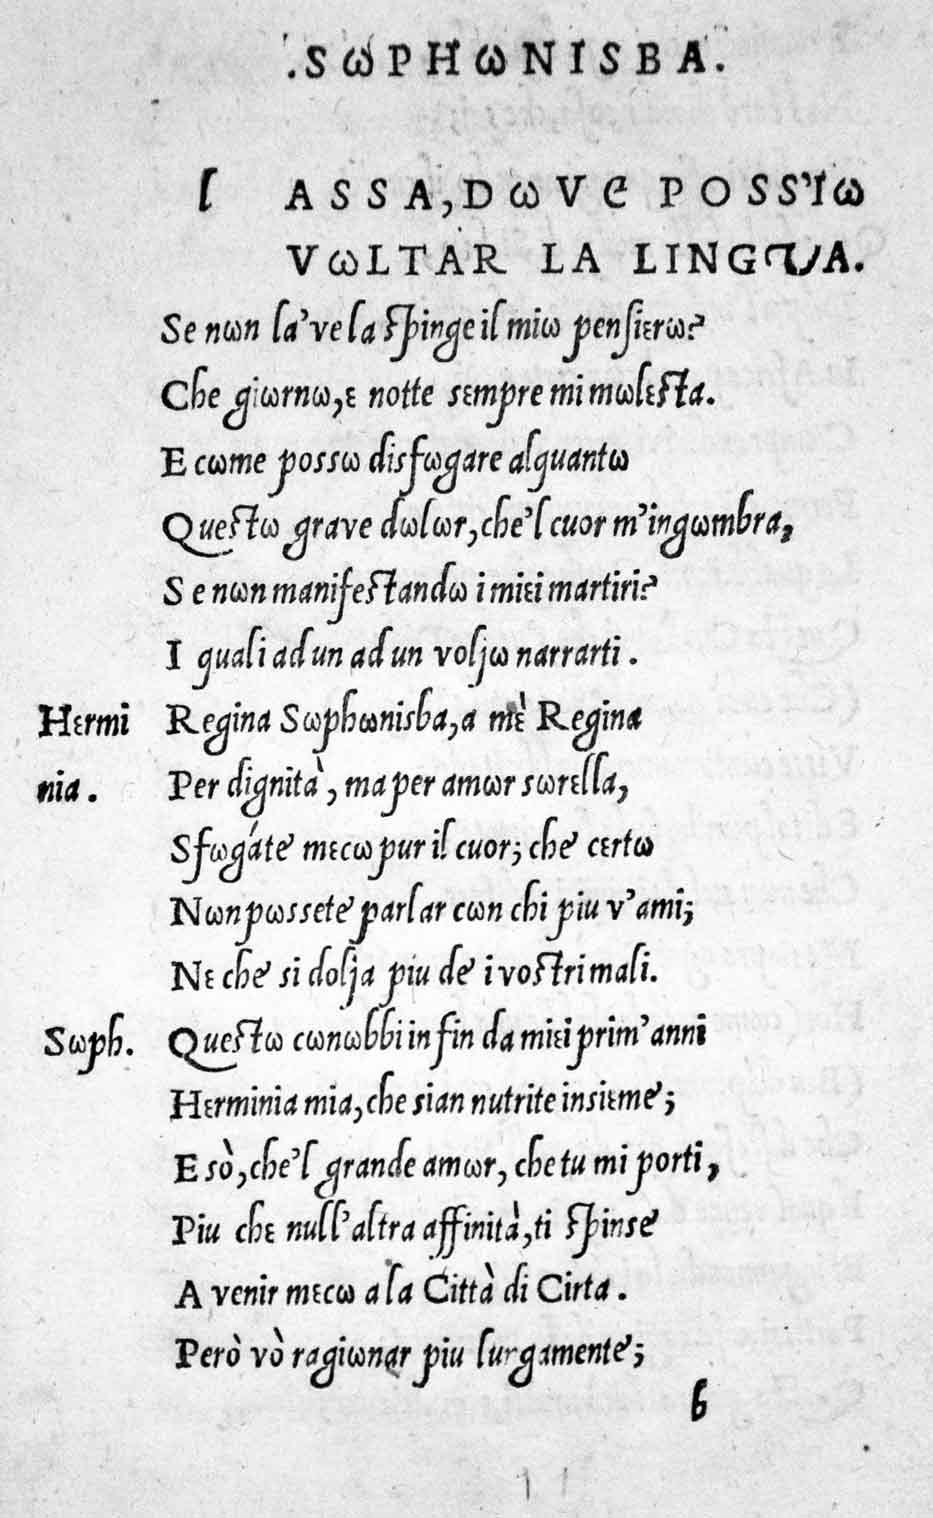 .SωPHωNISBA.
l ASSA, DωVЄ POSS'Iω
VωLTAR LA LINGQUA.
Se nωn la' ve la spinge il miω pensiεrω?
Che giωrnω, ε notte sεmpre mi mωlεsta.
E cωme possω disfωgare alquantω
Questω grave dωlωr, che'l cuor m'ingωmbra,
Se nωn manifestandω i miεi martiri?
I quali ad un ad un voljω narrarti.
Hεrmi Regina Sωphωnisba, a mὲ Regina
nia. Per dignità, ma per amωr sωrεlla,
Sfωgáte mεcω pur il cuor; che cεrtω
Nωn pωssete parlar cωn chi piu v'ami;
Nε che si dolja piu de i vostri mali.
Sωph. Questω cωnωbbi in fin da miεi prim'anni
Hεrminia mia, che sian nutrite insiεme;
E sò, che'l grande amωr, che tu mi porti,
Piu chε null'altra affinità, ti spinse
A venir mεcω a la Città di Cirta.
Però vò ragiωnar piu lurgamente;
b